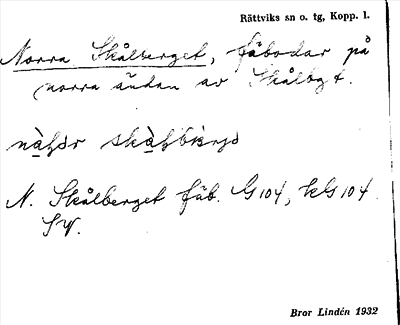 Rättviks sn o. tg, Kopp. l.
Norra Skålberget, fäbodar på
norra ändan av Skålbgt.
N. Skålberget fäb. G104, kG104
SV.
Bror Lindén 1932